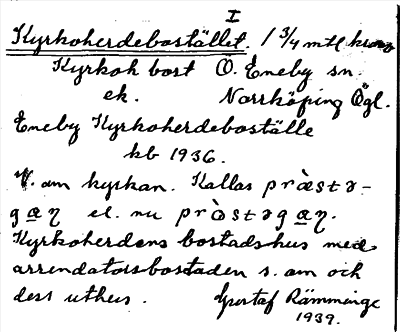 I
Kyrkoherdebostället. 1 3/4 mtl krono
Kyrkoh bost Ö. Eneby sn.
ek. Norrköping Ögl.
Eneby Kyrkoherdeboställe
kb 1936.
V. om kyrkan. Kallas præ̀stə-
ga̲ɳ el. nu prɔ̀stəga̲ɳ.
Kyrkoherdens bostadshus med
arrendatorsbostaden s. om och
dess uthus. Gustaf Rämminge
1939.